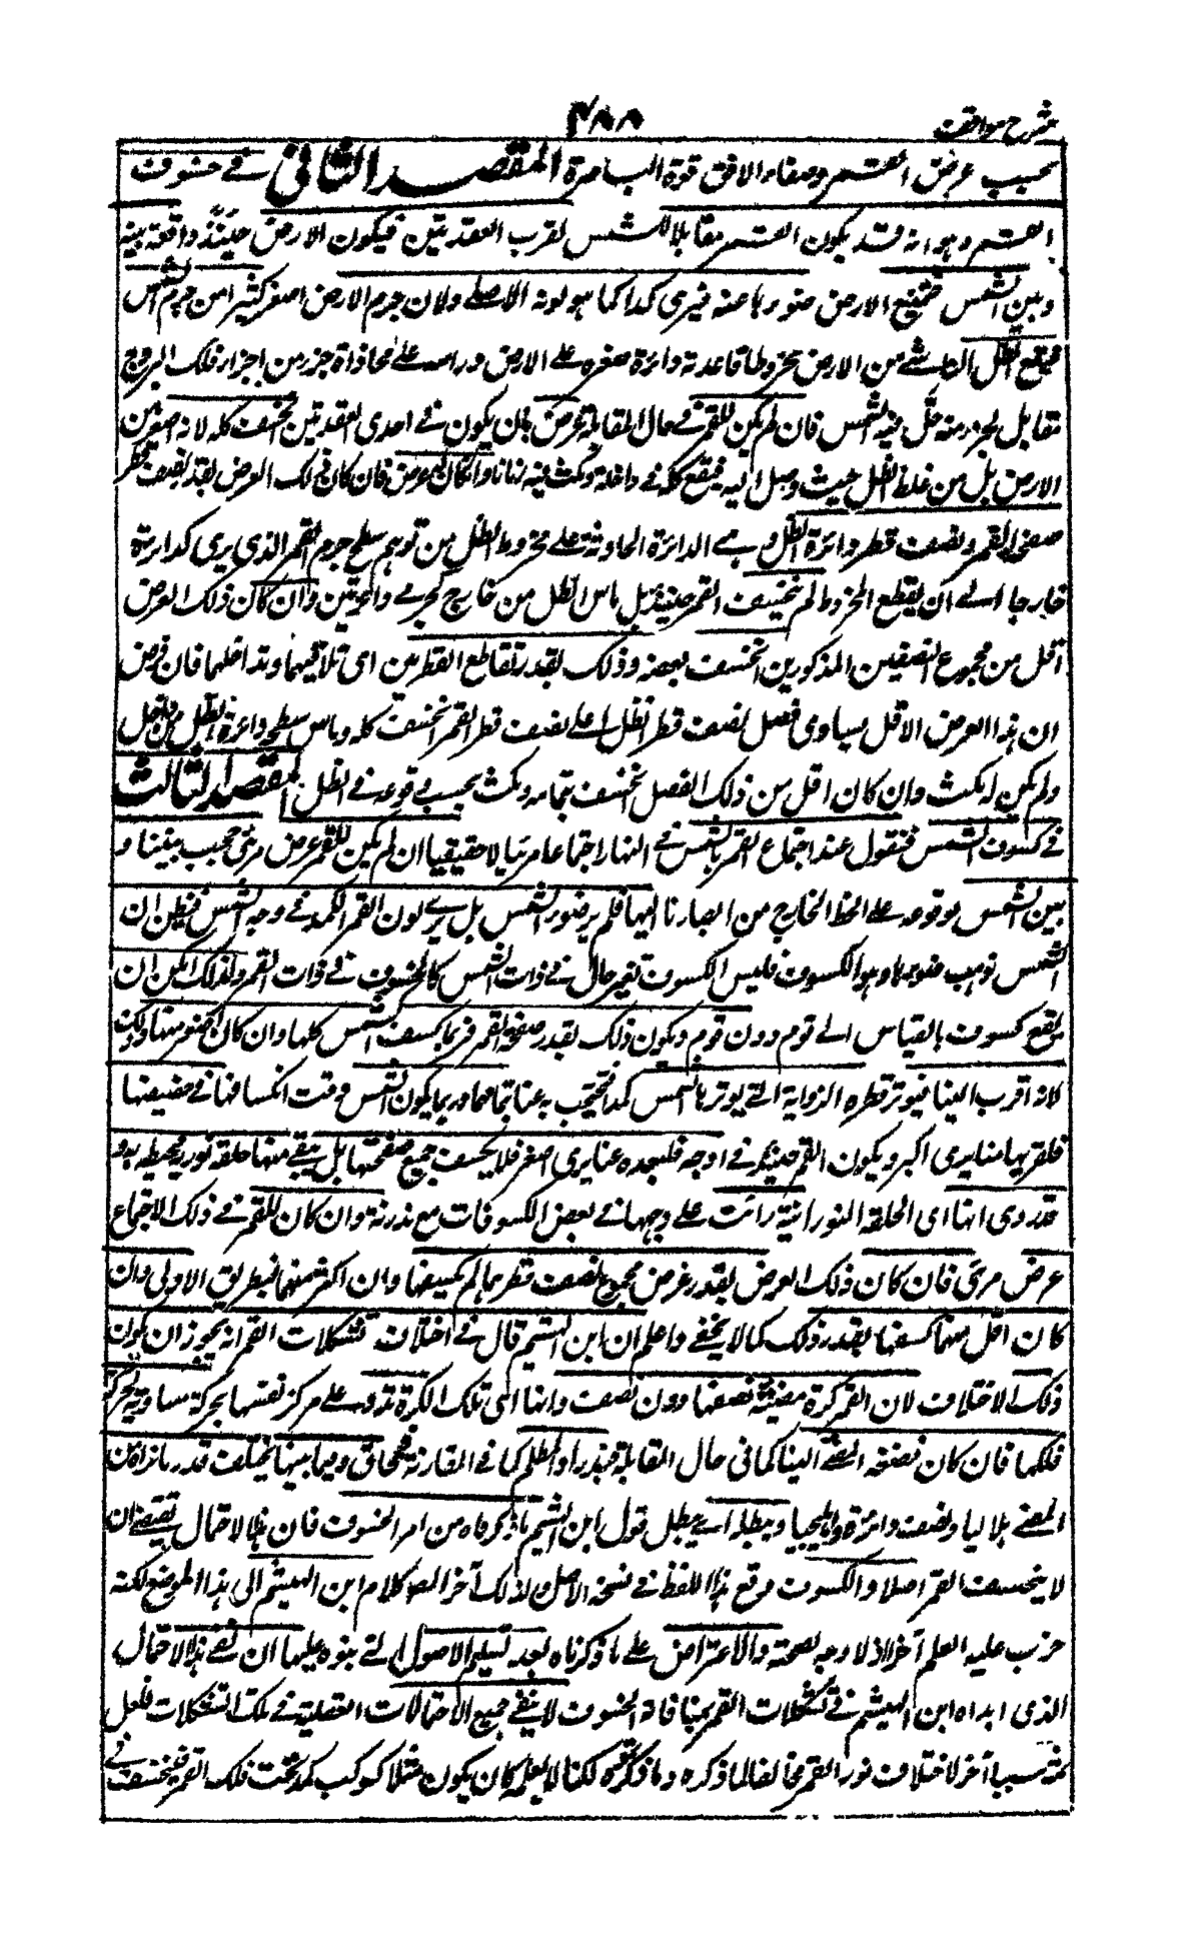 شرح مواقف
۴۸۸
بحسب عرض القمر وصفاء الافق قوة الباصرة المقصد الثانى فے خسوف
القمر وهو انه قد يكون القمر مقابلا للشمس لقرب العقدتين فيكون الارض حينئذ واقعة بينه
وبين الشمس فتمنع الارض ضوءها عنه فيرى كمدا كما هو لونه الاصلے ولان جرم الارض اصغر كثيرا من جرم الشمس
فيقع الظل الناشے من الارض مخروطا قاعدته دائرة صغيره علے الارض وراسه علے محاذاة جزء من اجزاء فلك البروج
مقابل لجزء منه حل فيه الشمس فان لم يكن للقمر فے حال المقابلة عرض بان يكون فے احدى العقدتين انخسف كله لانه اصغر من
الارض بل من غلظ الظل حيث وصل اليه فيقع كله فے داخله ومكث فيه زمانا وان كان له عرض فان كان ذلك العرض بقدر نصف قطر
صفحة القمر ونصف قطر دائرة الظل و هے الدائرة الحادثة علے مخروط الظل من توهم سطح جرم القمر الذى يرى كدائرة
خارجا الے ان يقطع المخروط لم ينخسف القمر حينئذ بل ماس الظل من خارج كجرمے دائرتين وان كان ذلك العرض
اقل من مجموع النصفين المذكورين انخسف بعضه وذلك بقدر تقاطع القطرين اى تلاقيهما وتداخلهما فان فرض
ان هذا العرض الاقل يساوى فضل نصف قطر الظل علے نصف قطر القمر انخسف كله وماس سطحه دائرة الظل من داخل
ولم يكن له مكث وان كان اقل من ذلك الفضل انخسف بتمامه ومكث بحسب وقوعه فے الظل المقصد الثالث
فے كسوف الشمس فنقول عند اجتماع القمر بالشمس فے النهار اجتماعا مرئيا لا حقيقيا ان لم يكن للقمر عرض مرئى حجب بيننا و
بين الشمس لوقوعه علے الخط الخارج من ابصارنا اليها فلم ير ضوء الشمس بل يرے لون القمر الكمد فے وجه الشمس فيظن ان
الشمس ذهب ضوءها وهو الكسوف فليس الكسوف تغير حال فے ذات الشمس كالخسوف فے ذات القمر ولذلك امكن ان
يقع كسوف بالقياس الے قوم دون قوم ويكون ذلك بقدر صفحة القمر فربما كسف الشمس كلها وان كان اصغر منها وذلك
لانه اقرب الينا فيوتر قطره الزواية التے يوترها الشمس كمدا فتحجب به عنا بتمامها وربما يكون الشمس وقت انكسافها فے حضيضها
فلقربها منا يرى اكبر ويكون القمر حينئذ فے اوجه فلبعده عنا يرى اصغر فلا يكسف جميع صفحتها بل يبقے منها حلقة نور محيطه به و
قد روى انها اى الحلقة النورانية رأيت علے وجهها فے بعض الكسوفات مع ندرته وان كان للقمر فے ذلك الاجتماع
عرض مرئى فان كان ذلك العرض بقدر مجموع نصف قطريهما لم يكسفها وان اكثر منهما فبطريق الاولى وان
كان اقل منهما كسفها بقدر ذلك كما لا يخفے واعلم ان ابن الهيثم قال فے اختلاف تشكلات القمر انه يجوز ان يكون
ذلك الاختلاف لان القمر كرة مضيئة نصفها دون نصف وانها اى تلك الكرة تدور علے مركز نفسها بحركة مساوية لحركة
فلكها فان كان نصفه المضئے الينا كما فى حال المقابلة فبدر او المظلم كما فے المقارنة فمحاق وفيما بينهما يختلف قدر ما نراه من
المضئے هلاليا ونصف دائرة واهليلجيا ويبطله اے يبطل قول ابن الهيثم ما ذكرناه من امر الخسوف فان هذا الاحتمال يقتضے ان
لا ينخسف القمر اصلا والكسوف وقع هذا اللفظ فے نسخة الاصل ولذلك آخر المص كلام ابن الهيثم الى هذا الموضع لكنه
ضرب عليه القلم آخرا اذ لا وجه لصحته والاعتراض علے ما ذكرناه بعد تسليم الاصول التے بنوه عليها ان نفے هذا الاحتمال
الذى ابداه ابن الهيثم فے تشكلات القمر بمنافاة الخسوف لا ينفے جميع الاحتمالات العقلية فے تلك التشكلات فلعل
ثمه سببا آخر لاختلاف نور القمر مخالفا لما ذكره وما ذكرتموه لكنا لا نعلمه كان يكون مثلا كوكب كمد تحت فلك القمر فينخسف فے